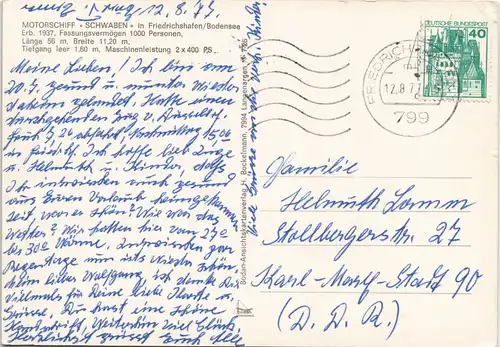 12.8.77.
MOTORSCHIFF »SCHWABEN« in Friedrichshafen/Bodensee
Erb. 1937, Fassungsvermögen 1000 Personen,
Länge 56 m, Breite 11,20 m,
Tiefgang leer 1,60 m, Maschinenleistung 2 x 400 PS.
Meine Lieben! Ich bin am
20.7. gesund u. munter wieder
daheim gelandet. Hatte einen
durchgehenden Zug v. Düsseldorf
früh 7.20 abfahrt Nachmittag 15.06
in Friedrh. Ich hoffe liebe Inge
u. Helmuth u. Kinder, daß
Ihr inzwischen auch gesund
aus Euren Urlaub heimgekommen
seit, war es schön? Wie war das
Wetter? Wir hatten hier von 25°
bis 30° Wärme, inzwischen paar
Regentage nun ists wieder schön.
Mein lieber Wolfgang, ich danke Dir
vielmals für Deine liebe Karte u.
Grüsse. Du hast eine schöne
Handschrift, Weiterhin viel Glück
Herzlichst grüsst Euch alle
Bodan-Ansichtskartenverlag H. Bockelmann, 7994 Langenargen
DEUTSCHE BUNDESPOST
40
FRIEDRICHSHAFEN
12.8.77
799
Familie
Helmuth Lamm
Stollbergerstr. 27
Karl-Marx-Stadt 90
(D.D.R.)